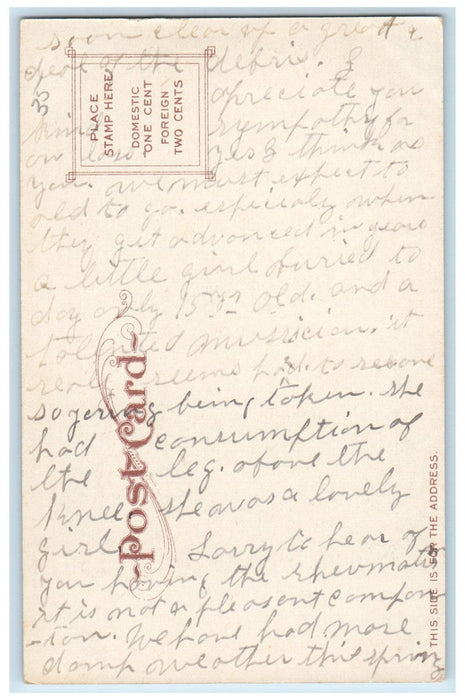 soon clear up a great
deal of the debris. I
apreciate you
kind sympathy for
our loss yes I think as
you. we must expect to
old to go. especialy when
they get advanced in years
a little girl buried to
day only 15 yr old. and a
talented musician. it
real seems hard to
so young being taken. she
had consumption of
the leg. above the
knee she was a lovely
girl Sorry to hear of
you having the rheumatism
it is not a pleasant compan
-ion. We have had more
damp weather this spring
35
PLACE
STAMP HERE
DOMESTIC
ONE CENT
FOREIGN
TWO CENTS
Post Card
THIS SIDE IS FOR THE ADDRESS.